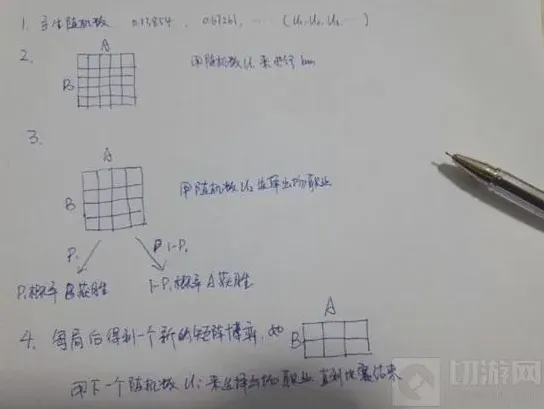 1. 产生随机数 0.13854 , 0.67261, ... (U₁,U₂,U₃...)
2.
A
B
用随机数U₁来进行ban
3.
A
B
用随机数U₂选择出场职业
P₁
1-P₁
P₁概率B获胜
1-P₁概率A获胜
4. 每局后得到一个新的矩阵博弈, 如
A
B
用下一个随机数Uᵢ来选择出场职业 直到比赛结束
切游网